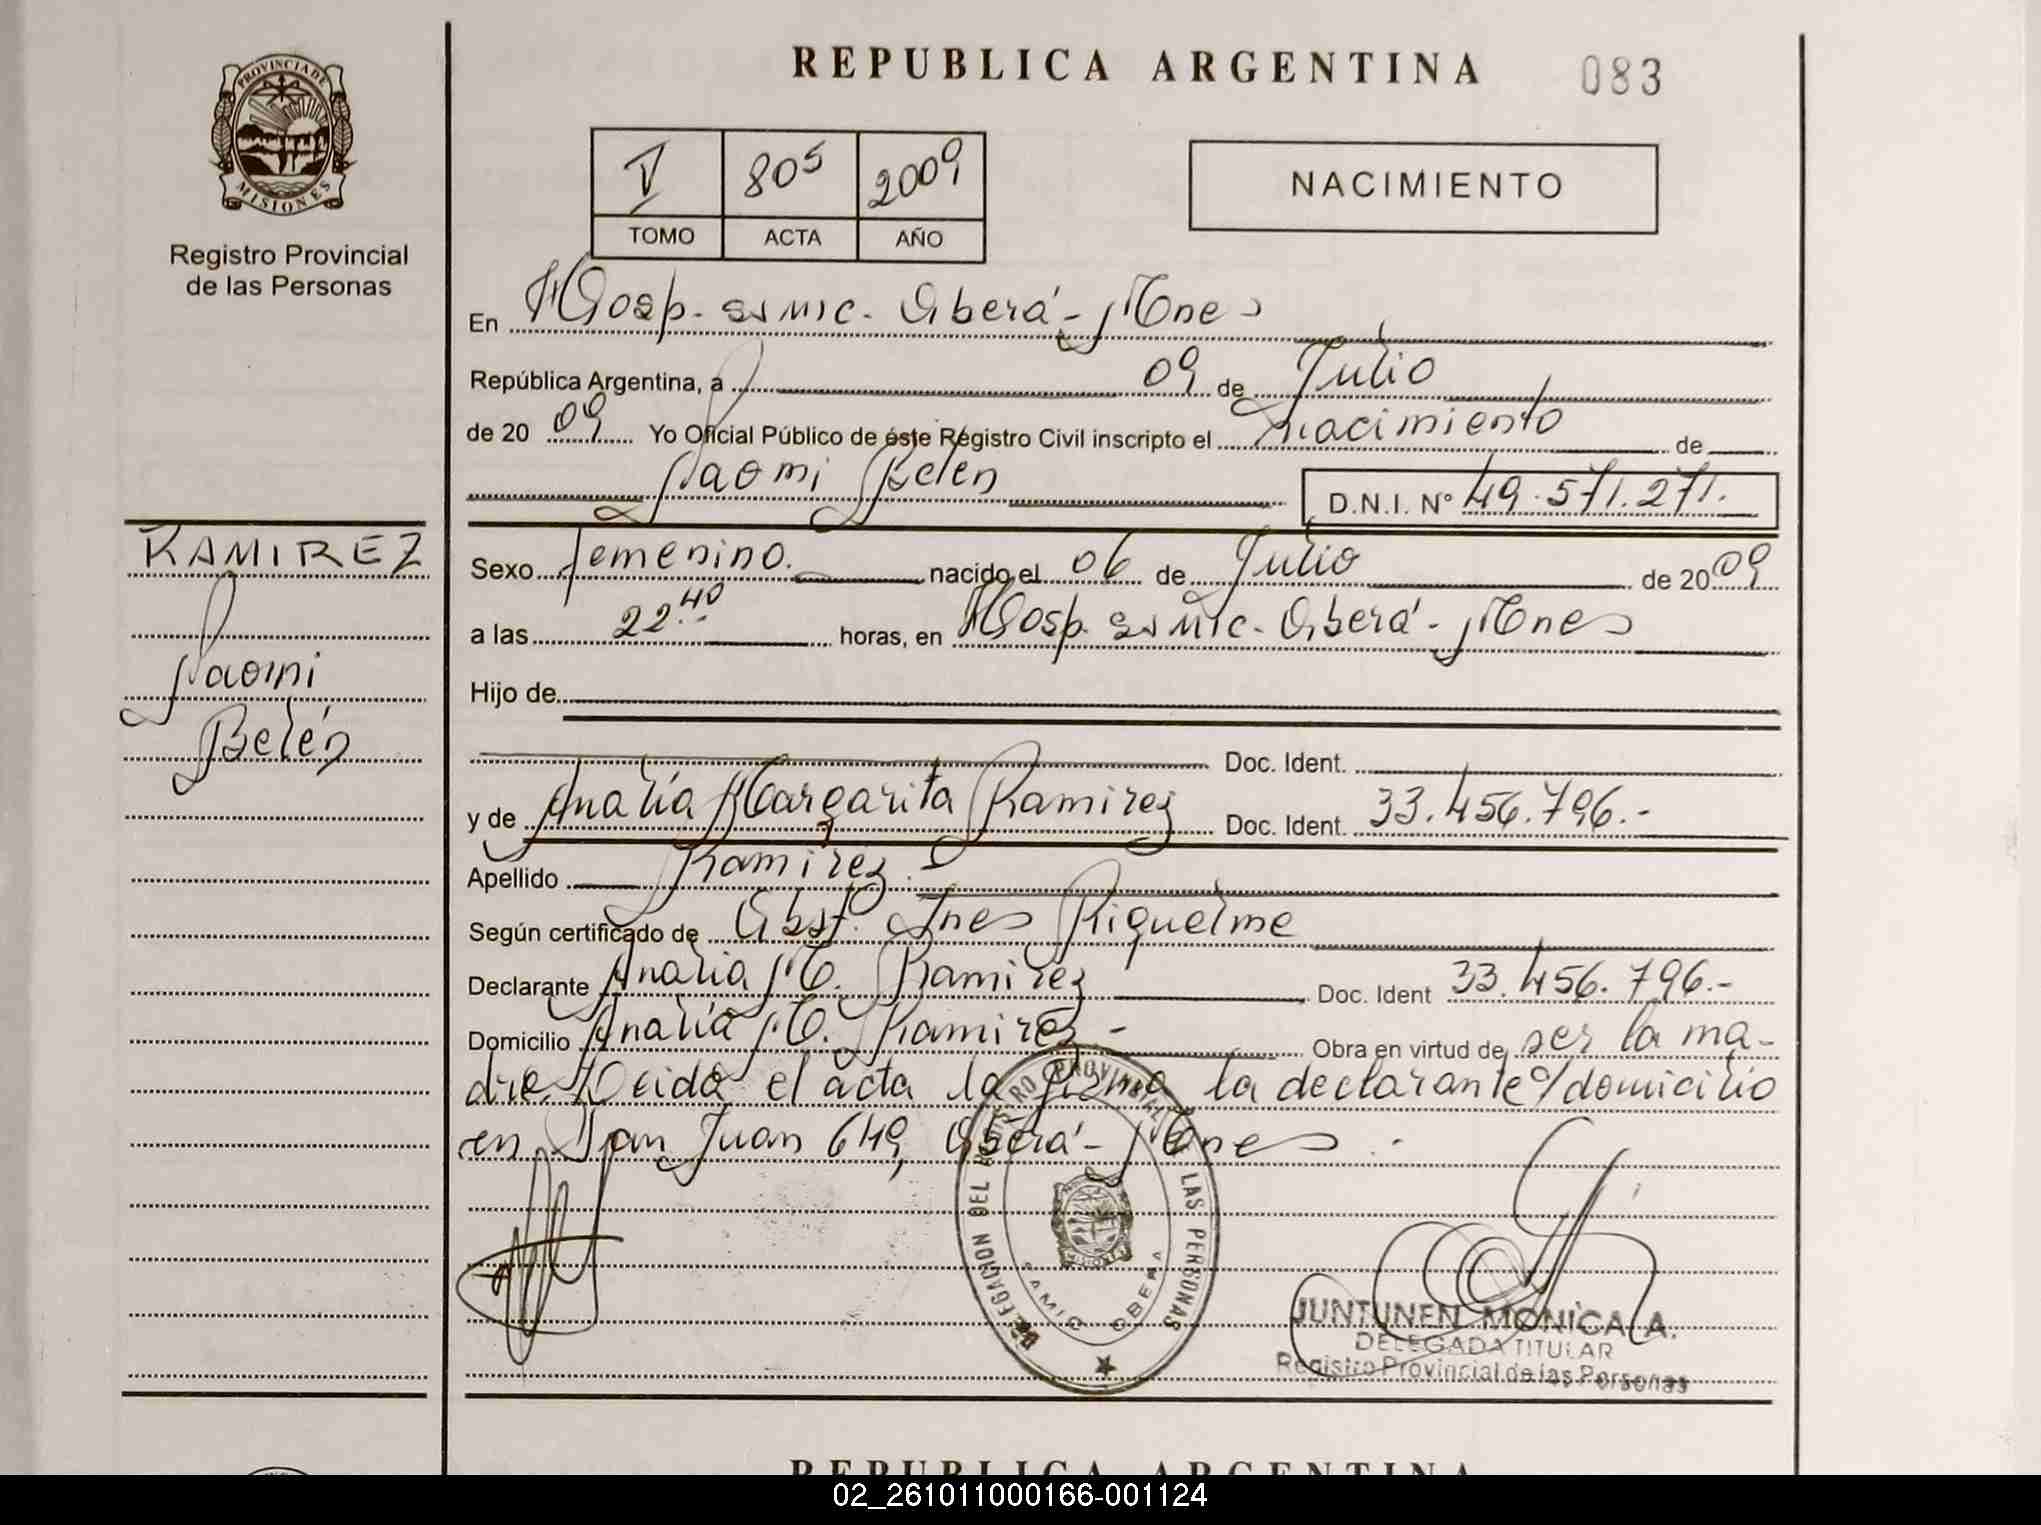 REPUBLICA ARGENTINA
083
PROVINCIA DE
MISIONES
Registro Provincial
de las Personas
V 805 2009
TOMO ACTA AÑO
NACIMIENTO
En Hosp. SAMIC. Oberá - Mnes
República Argentina, a 09 de Julio
de 20 09 Yo Oficial Público de éste Registro Civil inscripto el nacimiento de
Naomi Belén D.N.I. N° 49.571.271.
RAMIREZ
Naomi
Belén
Sexo femenino. nacido el 06 de Julio de 20 09
a las 22.40 horas, en Hosp. SAMIC. Oberá - Mnes
Hijo de
Doc. Ident.
y de Analía Margarita Ramirez Doc. Ident. 33.456.796.-
Apellido Ramirez.
Según certificado de Obst. Ines Riquelme
Declarante Analia M. Ramirez Doc. Ident 33.456.796.-
Domicilio Analía M. Ramirez - Obra en virtud de ser la ma-
dre. Leida el acta la firma la declarante c/domicilio
en San Juan 649, Oberá - Mnes.
DELEGACION DEL REGISTRO PROVINCIAL DE LAS PERSONAS
SAMIC OBERA
JUNTUNEN MONICA A.
DELEGADA TITULAR
Registro Provincial de las Personas
REPUBLICA ARGENTINA
02_261011000166-001124